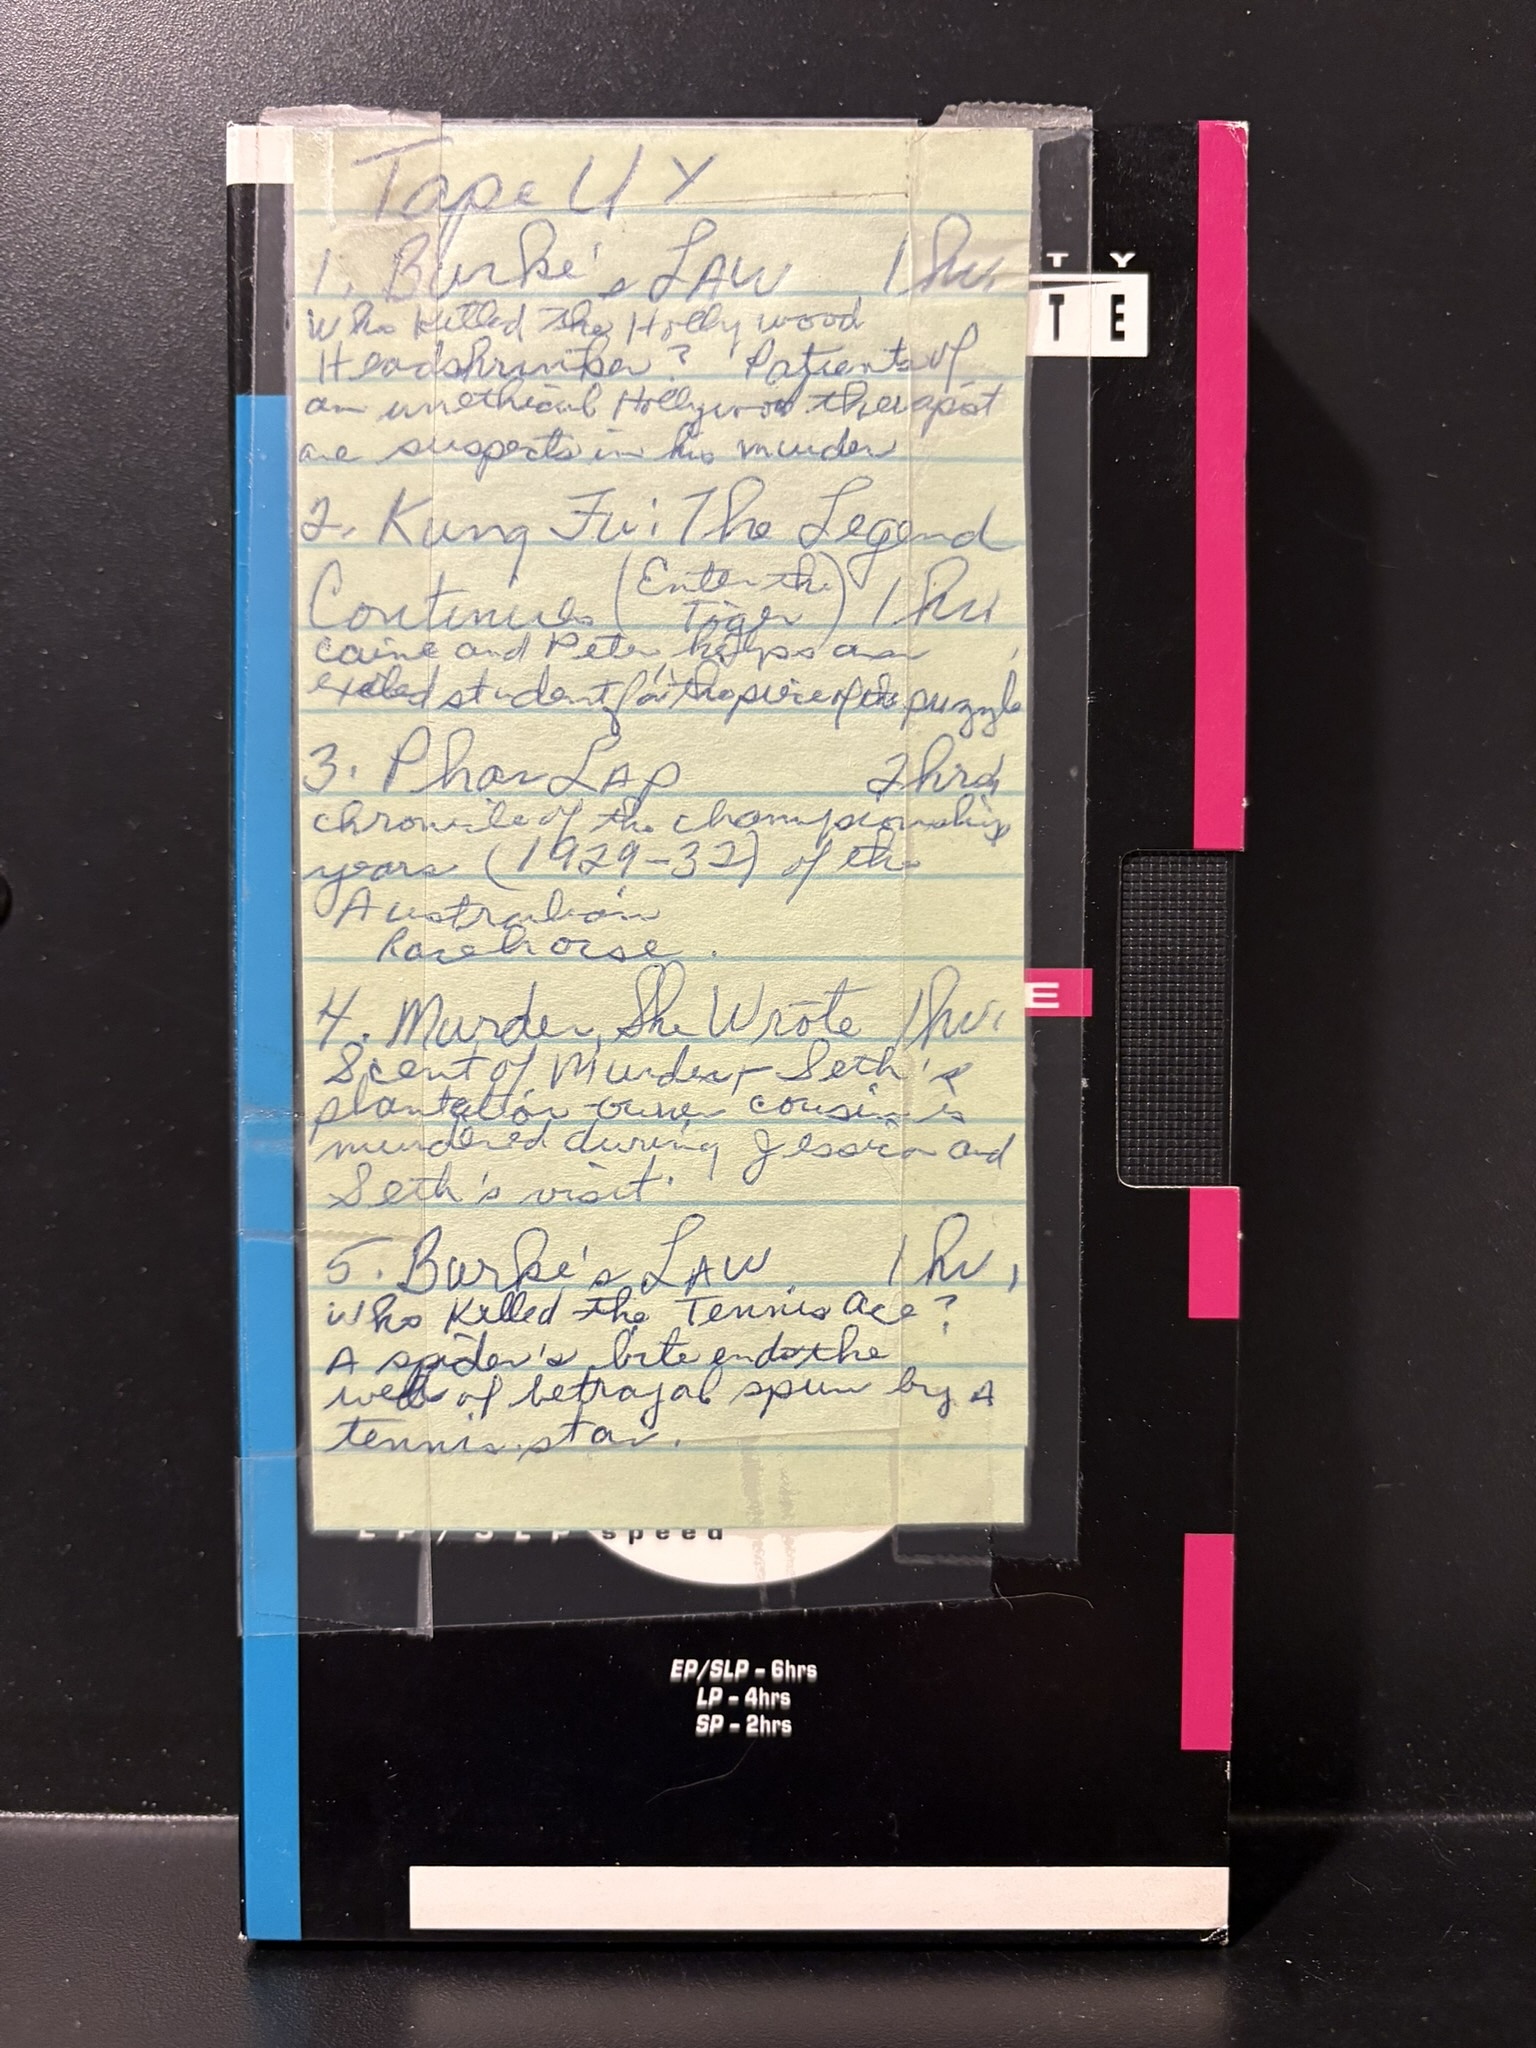 Tape UY
1. Burke's LAW 1 hr.
Who Killed the Hollywood
Headshrinker? Patients of
an unethical Hollywood therapist
are suspects in his murder
2. Kung Fu: The Legend
Continues (Enter the Tiger) 1 hr.
Caine and Peter helps an
exiled student for the piece of the puzzle
3. Phar LAP 2 hrs.
chronicle of the championship
years (1929-32) of the
Australian
Racehorse.
4. Murder, She Wrote 1 hr.
Scent of Murder - Seth's
plantation-owner cousin is
murdered during Jessica and
Seth's visit.
5. Burke's LAW 1 hr.
Who Killed the Tennis Ace?
A spider's bite ends the
web of betrayal spun by A
tennis star.
TY
TE
E
EP/SLP speed
EP/SLP - 6hrs
LP - 4hrs
SP - 2hrs